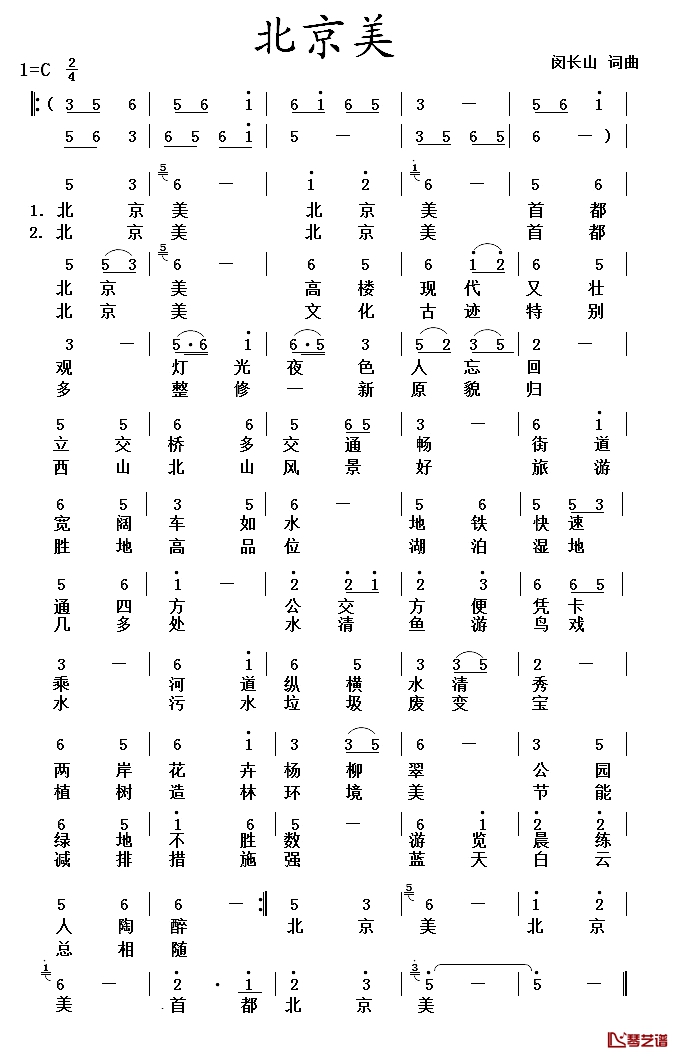 北京美
1=C 2/4 闵长山 词曲
( 3 5 6 | 5 6 1 | 6 1 6 5 | 3 — | 5 6 1 |
5 6 3 | 6 5 6 1 | 5 — | 3 5 6 5 | 6 — )
5 3 | 5 6 — | 1 2 | 1 6 — | 5 6 |
1. 北 京 美 北 京 美 首 都
2. 北 京 美 北 京 美 首 都
5 5 3 | 5 6 — | 6 5 | 6 1 2 | 6 5 |
北 京 美 高 楼 现 代 又 壮
北 京 美 文 化 古 迹 特 别
3 — | 5 · 6 1 | 6 · 5 3 | 5 2 3 5 | 2 — |
观 灯 光 夜 色 人 忘 回
多 整 修 一 新 原 貌 归
5 5 | 6 6 | 5 6 5 | 3 — | 6 1 |
立 交 桥 多 交 通 畅 街 道
西 山 北 山 风 景 好 旅 游
6 5 | 3 5 | 2 — | 5 6 | 5 5 3 |
宽 阔 车 如 水 地 铁 快 速
胜 地 高 品 位 湖 泊 湿 地
5 6 | 1 — | 2 2 1 | 2 3 | 6 6 5 |
通 四 方 公 交 方 便 凭 卡
几 多 处 水 清 鱼 游 鸟 戏
3 — | 6 1 | 6 5 | 3 3 5 | 2 — |
乘 河 道 纵 横 水 清 秀
水 污 水 垃 圾 废 变 宝
6 5 | 6 1 | 3 3 5 | 6 — | 3 5 |
两 岸 花 卉 杨 柳 翠 公 园
植 树 造 林 环 境 美 节 能
6 5 | 1 6 | 5 — | 6 1 | 2 2 |
绿 地 不 胜 数 游 览 晨 练
减 排 措 施 强 蓝 天 白 云
5 6 | 6 — :‖ 5 3 | 5 6 — | 1 2 |
人 陶 醉 北 京 美 北 京
总 相 随
1 6 — | 2 · 1 | 2 3 | 3 5 — | 5 — ‖
美 首 都 北 京 美
琴艺谱